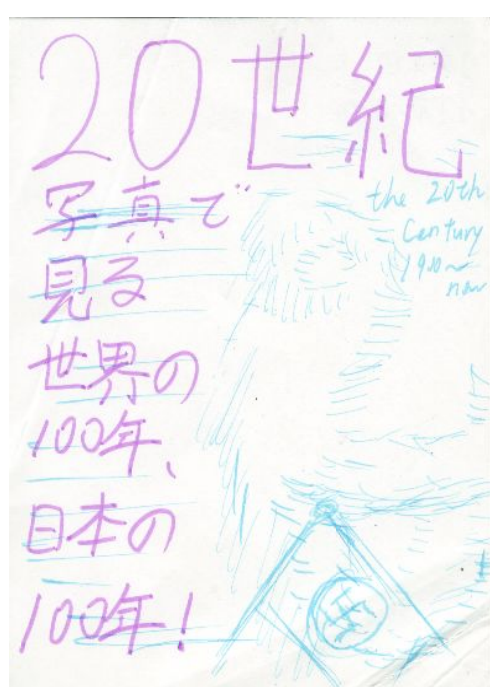 20世紀
写真で
見る
世界の
100年、
日本の
100年!
the 20th
Century
1900~
now